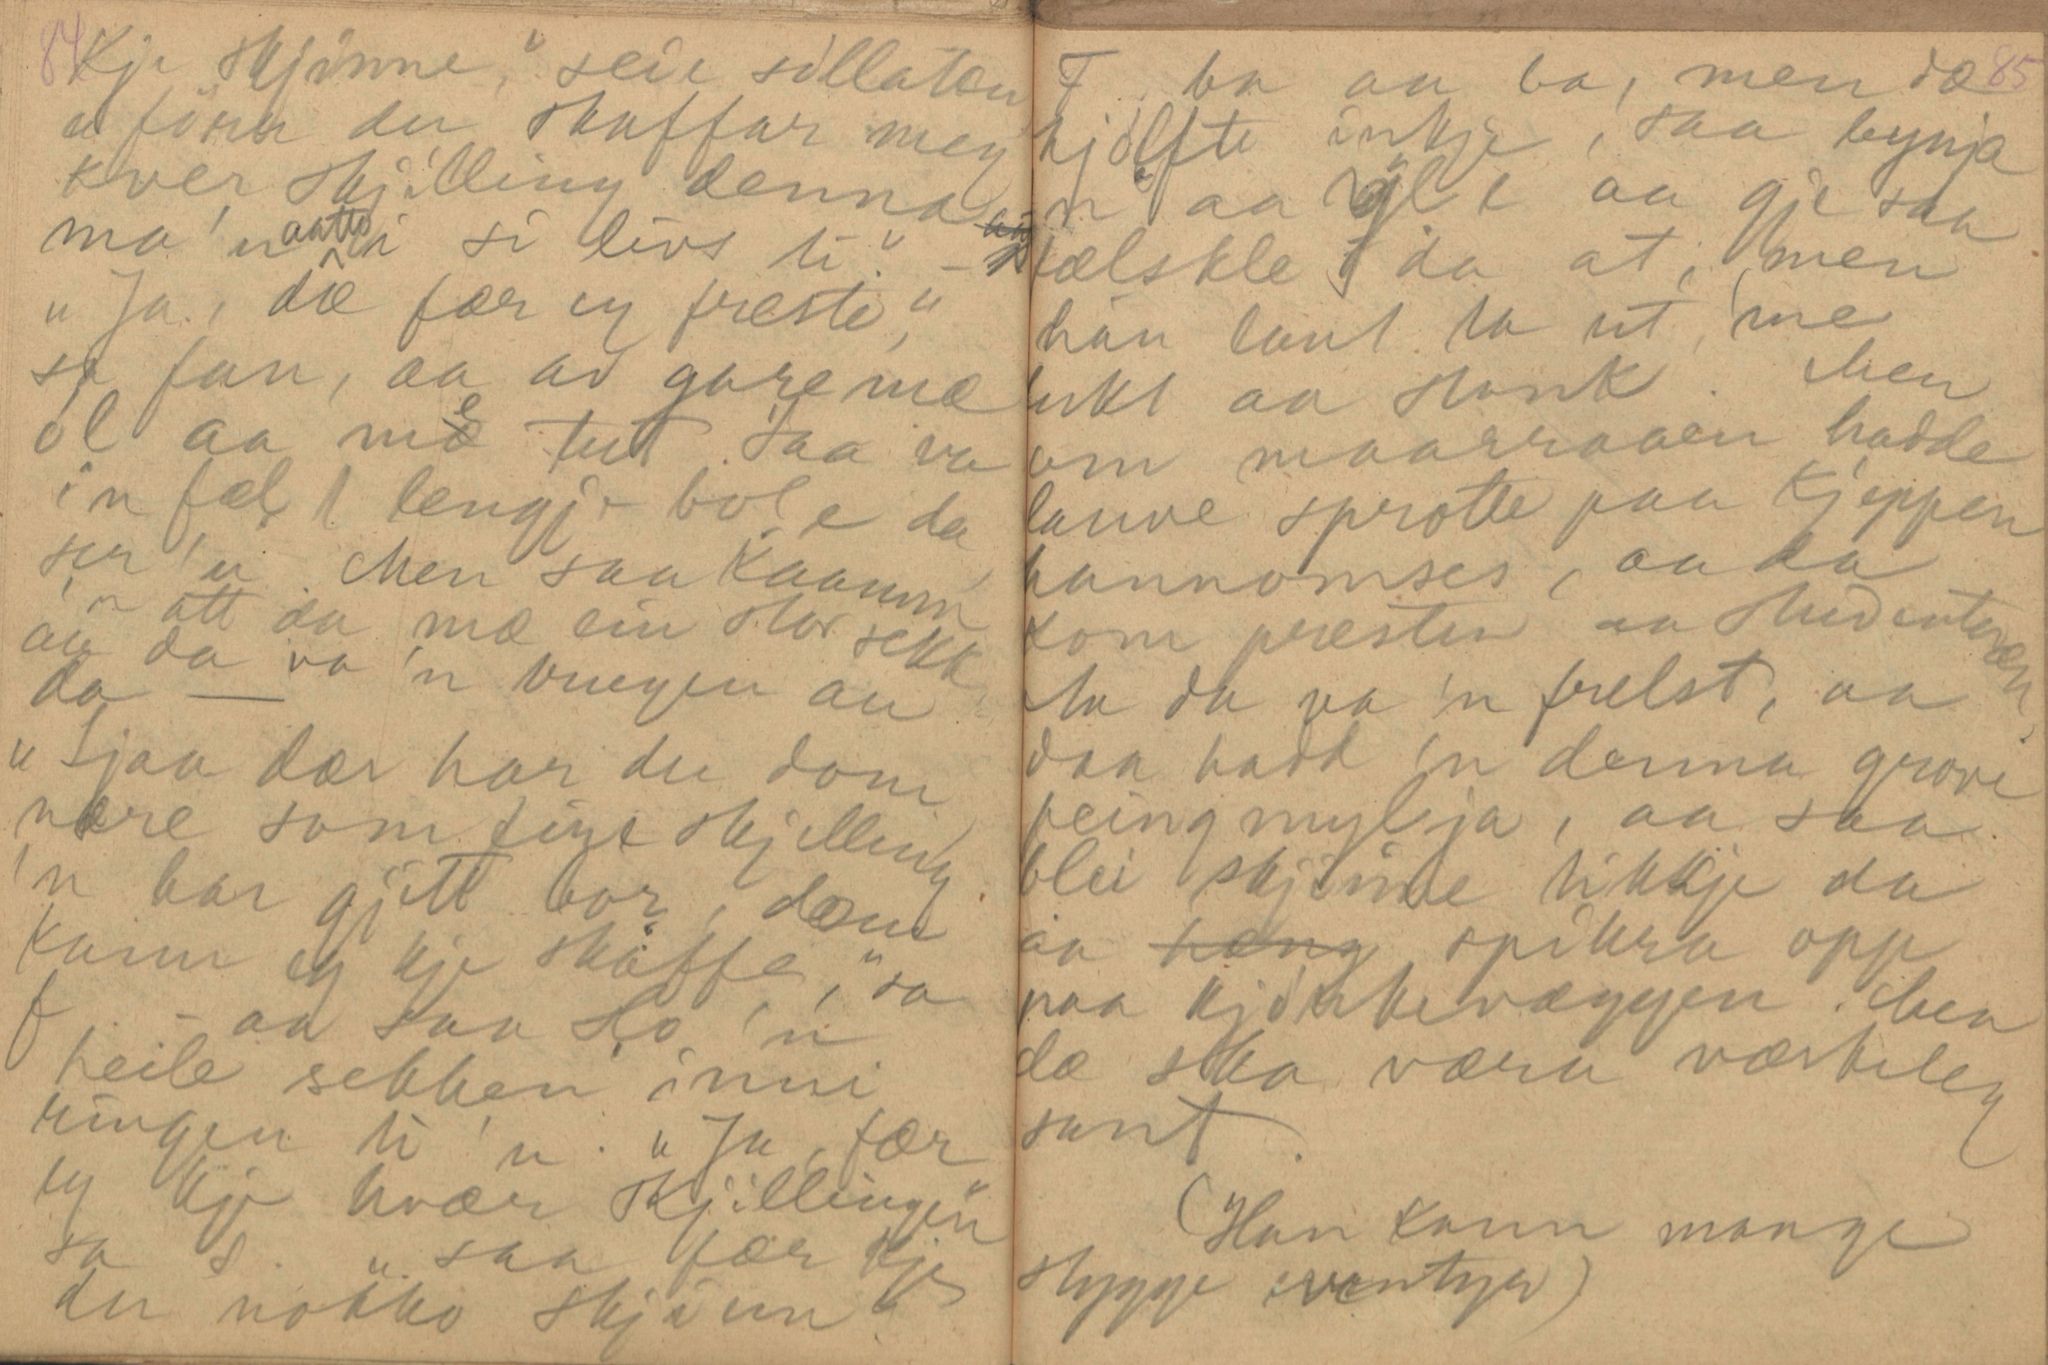 84
Kje skjinne," seie sillaten
u föru du skaffar mey
kver skjilling denna
ma'n aatte i si livs ti." -
"Ja, dæ fær ey freste,"
sa fan, aa av gare mæ
öl aa me tut. Saa va
i'n fæl t lengje bol e da
ser 'n. Men saa kaamm
'n att da mæ ein stor sekk
aa da va 'n vreyen au
da —
"Sjaa dær har du dom
nære som fire skjelling
'n har gjitt bor, dæm
kann ey kje skaffe," sa
f - aa saa slo 'n
heile sekken inni
ringen ti 'n. "Ja, fær
ey kje hvær skjillingen"
sa s. "saa fær kje
du nokko skjinn"
85
F. ba aa ba, men dæ
hjölfte inkje, saa bynja
'n aa öl e aa gje saa
fælskle i da at, men
han laut ta ut, me
lukt aa stonk. Men
om maarraaen hadde
lauve sprotte paa kjeppen
hannomses, aa da
kom presten aa studentenæn,
Aa da va 'n frelst, aa
daa hadd 'n denna grove
peingmylja, aa saa
blei skjinne tikkje da
aa hæng spikra opp
paa kjörkevæggen. Men
dæ ska væra værkeleg
sant.
(Han kann mange
stygge eventyr)